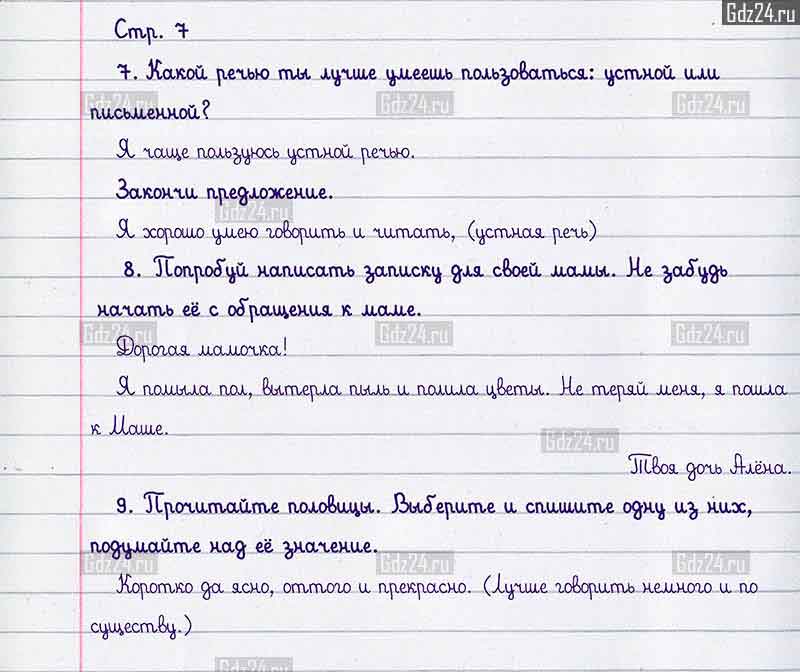 Gdz24.ru
Стр. 7
7. Какой речью ты лучше умеешь пользоваться: устной или
Gdz24.ru Gdz24.ru Gdz24.ru
письменной?
Я чаще пользуюсь устной речью.
Закончи предложение.
Gdz24.ru
Я хорошо умею говорить и читать, (устная речь)
8. Попробуй написать записку для своей мамы. Не забудь
начать её с обращения к маме.
Gdz24.ru Gdz24.ru Gdz24.ru
Дорогая мамочка!
Я помыла пол, вытерла пыль и полила цветы. Не теряй меня, я пошла
к Маше.
Gdz24.ru
Твоя дочь Алёна.
9. Прочитайте половицы. Выберите и спишите одну из них,
подумайте над её значение.
Gdz24.ru Gdz24.ru Gdz24.ru
Коротко да ясно, оттого и прекрасно. (Лучше говорить немного и по
существу.)
Gdz24.ru